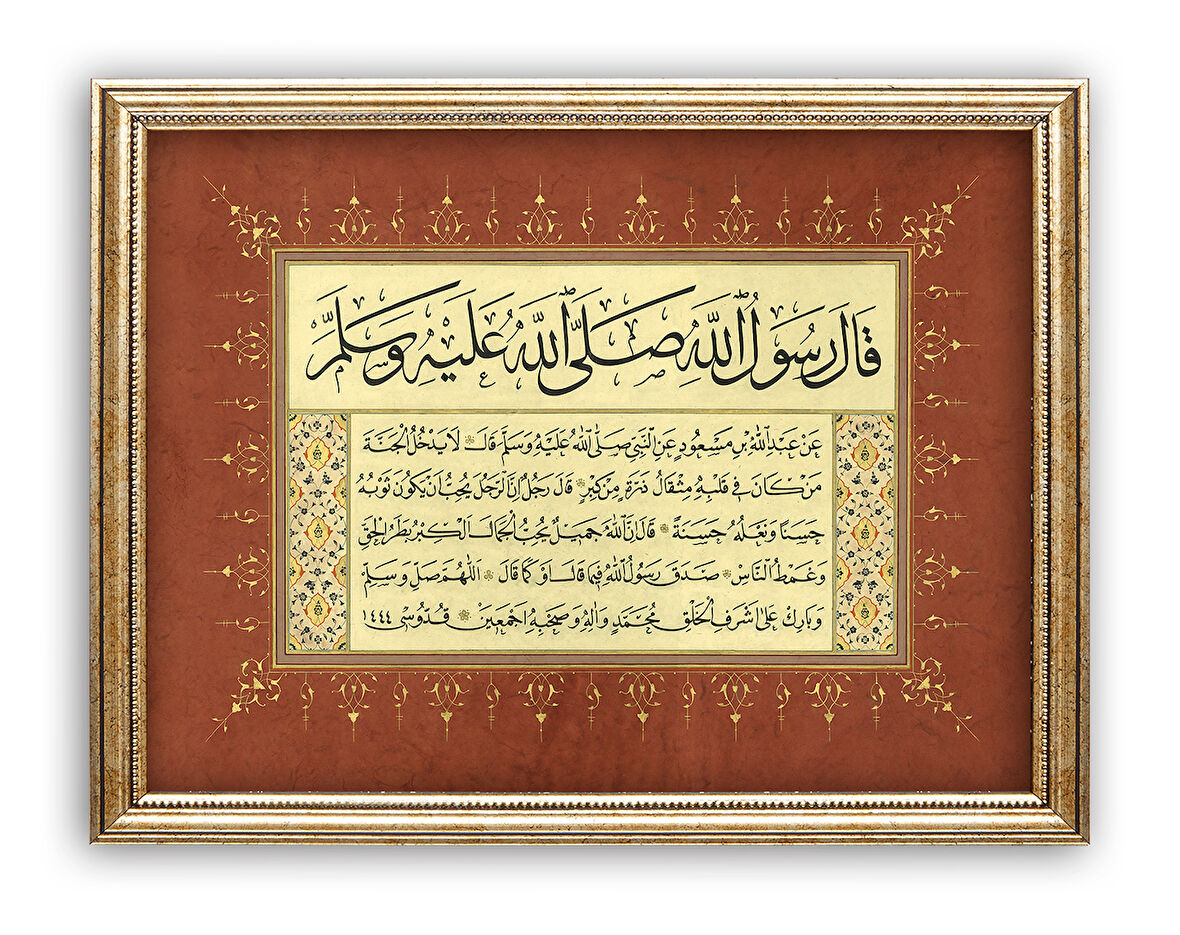 قَالَ رَسُولُ اللّٰهِ صَلَّى اللّٰهُ عَلَيْهِ وَسَلَّمَ
عَنْ عَبْدِ اللّٰهِ بْنِ مَسْعُودٍ عَنِ النَّبِيِّ صَلَّى اللّٰهُ عَلَيْهِ وَسَلَّمَ قَالَ لَا يَدْخُلُ الْجَنَّةَ
مَنْ كَانَ فِي قَلْبِهِ مِثْقَالُ ذَرَّةٍ مِنْ كِبْرٍ قَالَ رَجُلٌ إِنَّ الرَّجُلَ يُحِبُّ أَنْ يَكُونَ ثَوْبُهُ
حَسَنًا وَنَعْلُهُ حَسَنَةً قَالَ إِنَّ اللّٰهَ جَمِيلٌ يُحِبُّ الْجَمَالَ الْكِبْرُ بَطَرُ الْحَقِّ
وَغَمْطُ النَّاسِ صَدَقَ رَسُولُ اللّٰهِ فِيمَا قَالَ اَوْ كَمَا قَالَ اَللّٰهُمَّ صَلِّ وَسَلِّمْ
وَبَارِكْ عَلٰى اَشْرَفِ الْخَلْقِ مُحَمَّدٍ وَاٰلِهِ وَصَحْبِهِ اَجْمَعِينَ قُدُّوسِى ١٤٤٤